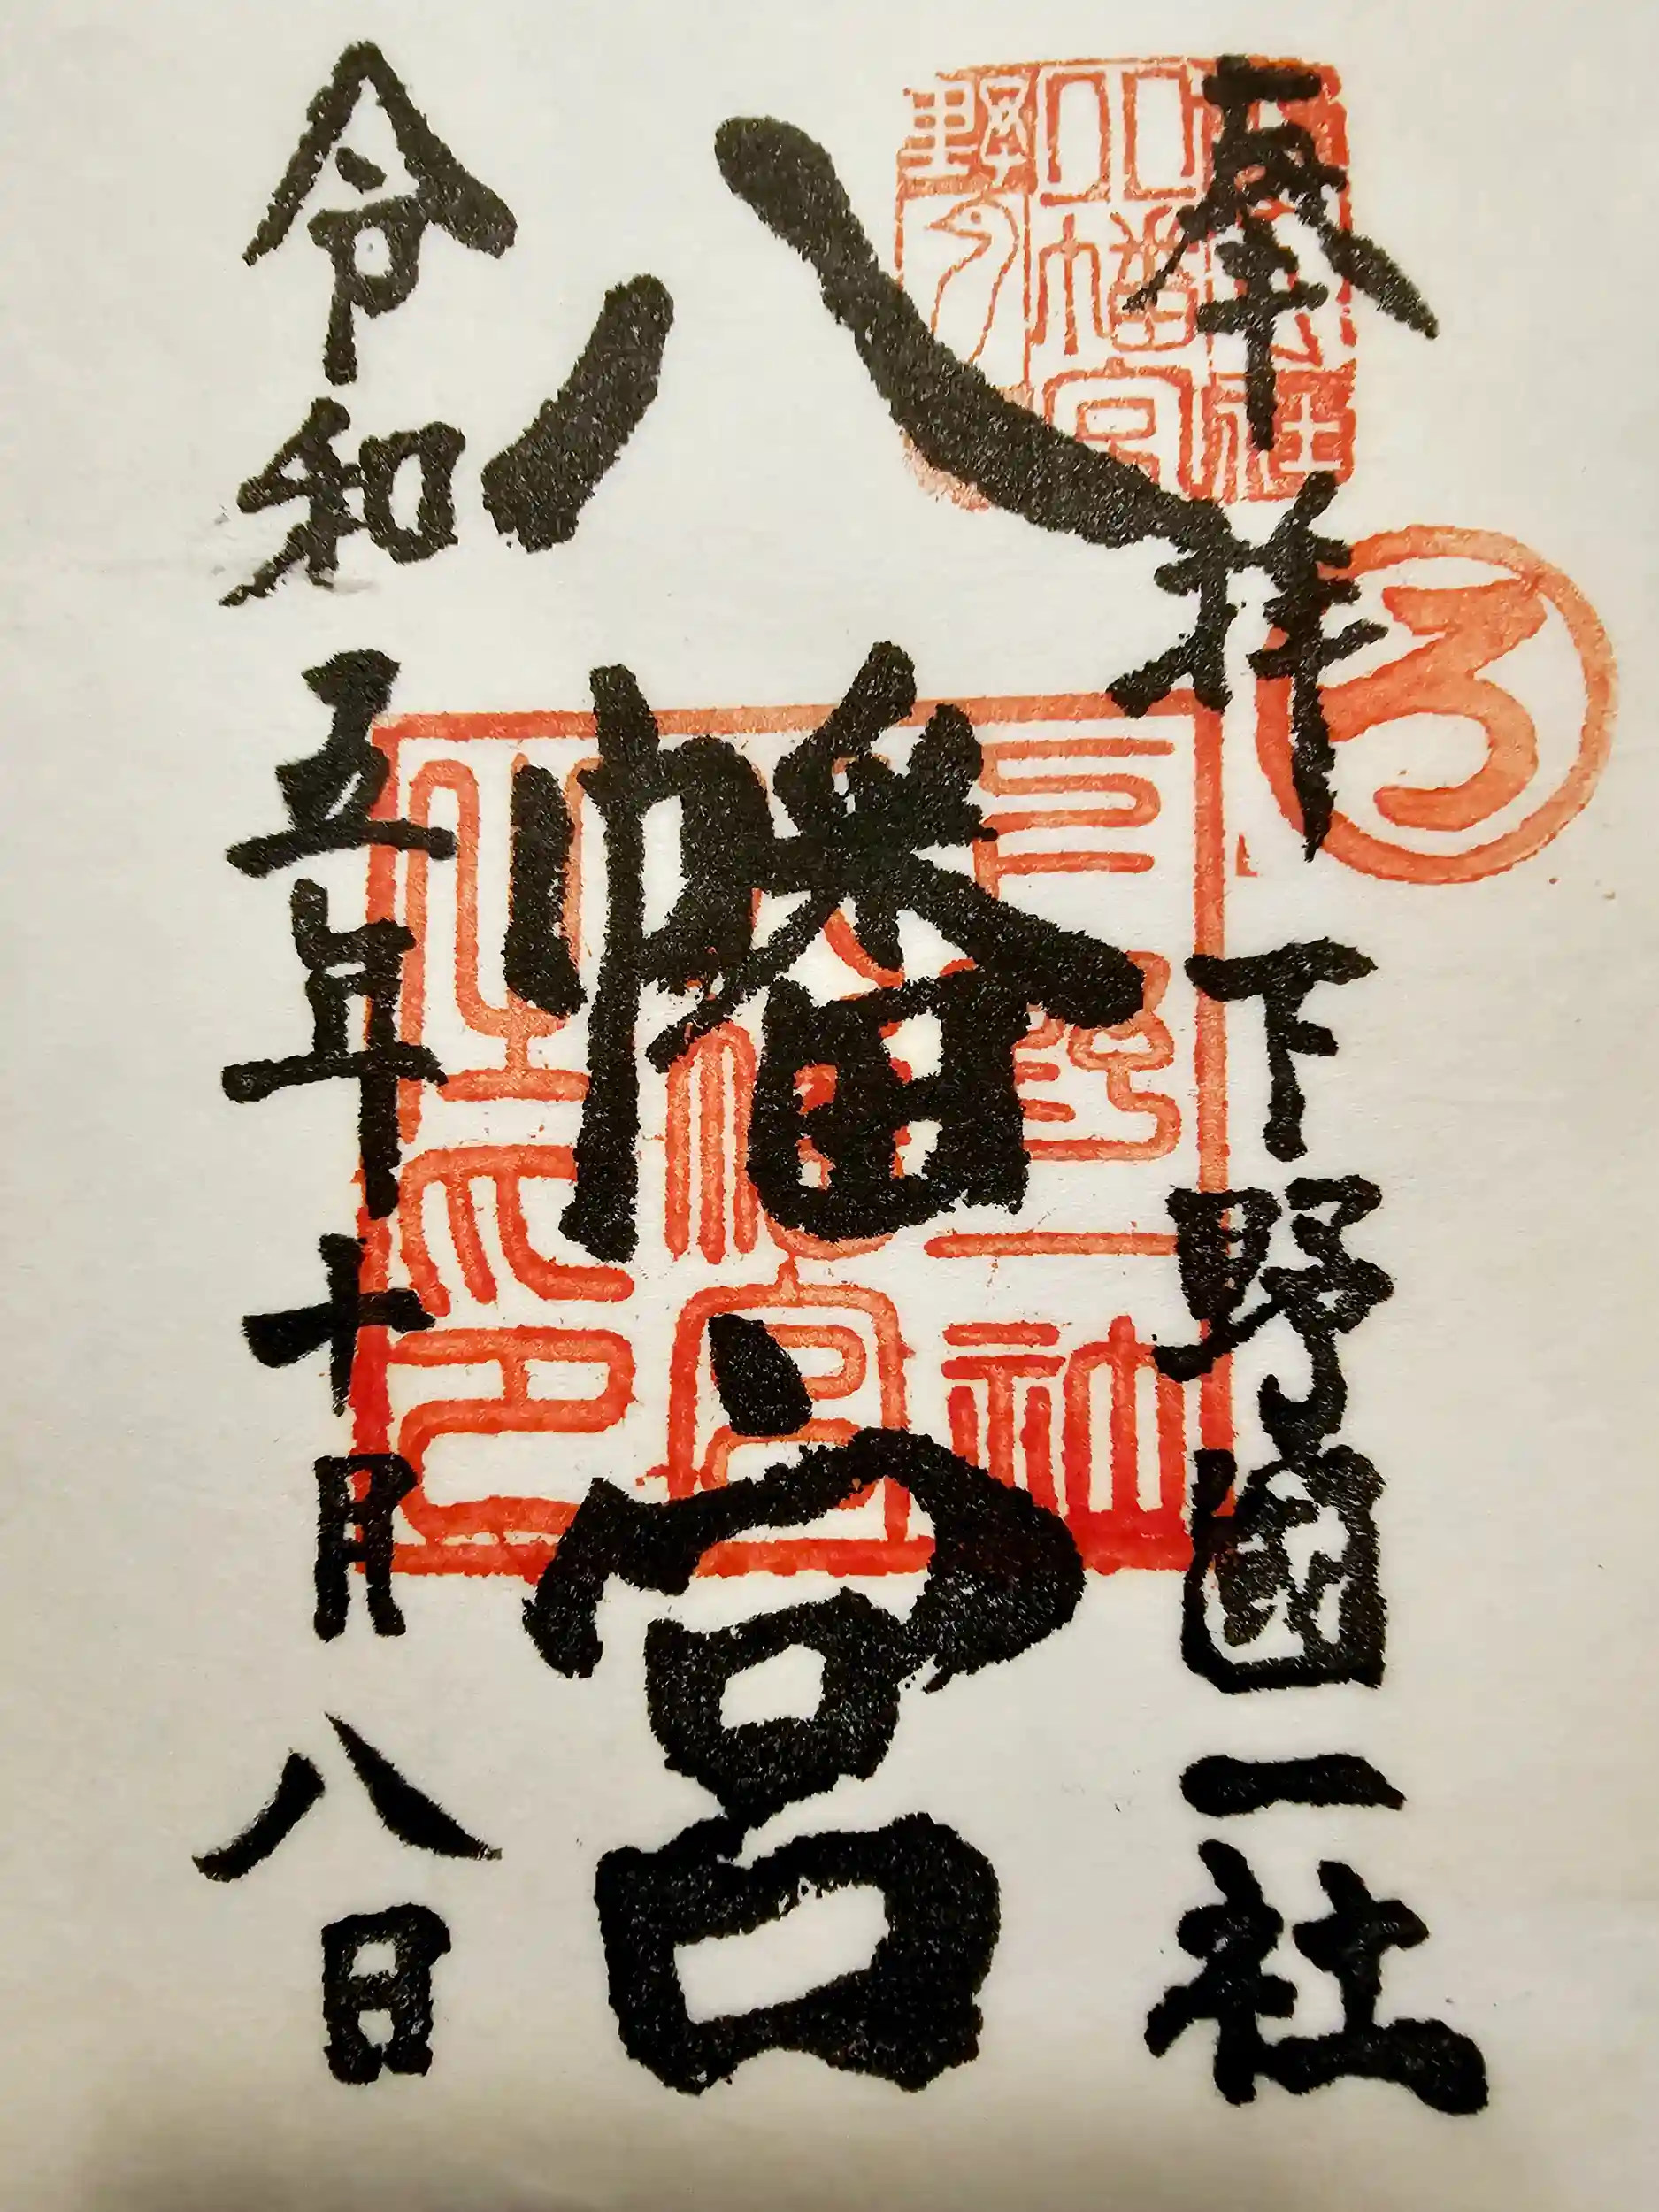 奉拝 下野國一社
八幡宮
令和五年十月八日